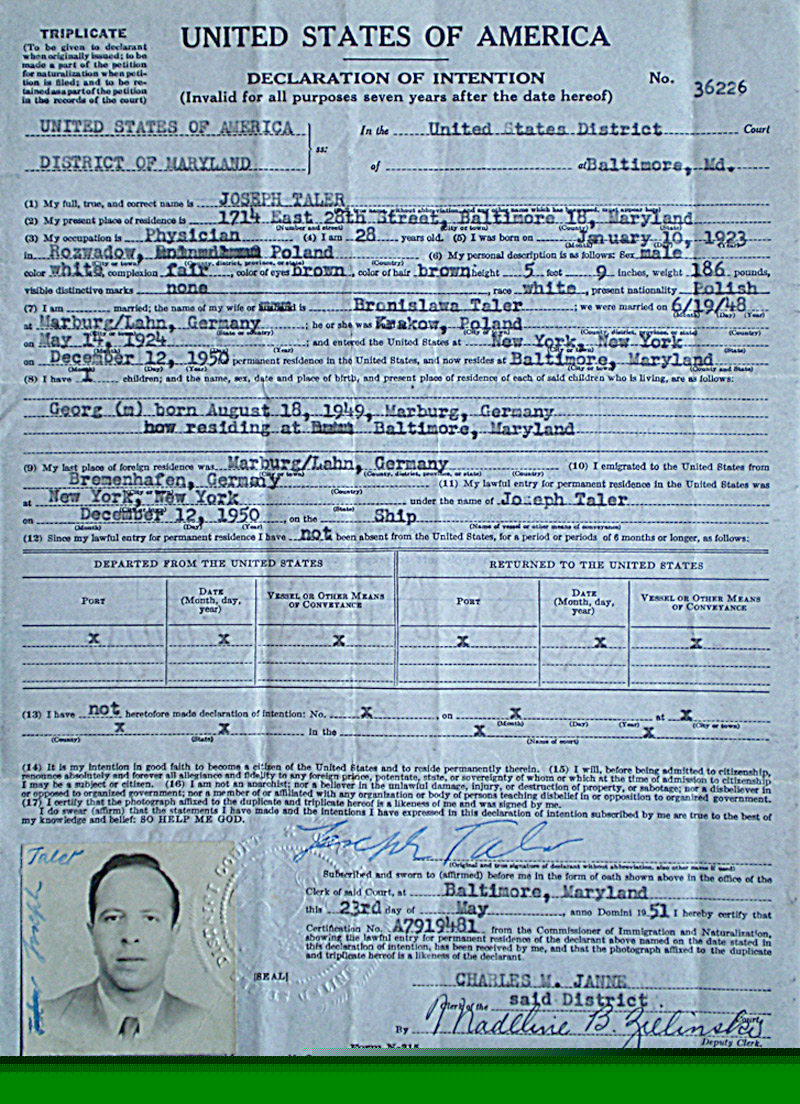 TRIPLICATE
(To be given to declarant
when originally issued; to be
made a part of the petition
for naturalization when peti-
tion is filed; and to be re-
tained as a part of the petition
in the records of the court)
UNITED STATES OF AMERICA
DECLARATION OF INTENTION
(Invalid for all purposes seven years after the date hereof)
No. 36226
UNITED STATES OF AMERICA
DISTRICT OF MARYLAND
ss:
In the United States District Court
of at Baltimore, Md.
(1) My full, true, and correct name is JOSEPH TALER
(2) My present place of residence is 1714 East 28th Street, Baltimore 18, Maryland
(Number and street) (City or town) (County) (State)
(3) My occupation is Physician (4) I am 28 years old. (5) I was born on January 10, 1923
in Rozwadow, Poland (6) My personal description is as follows: Sex male
color white, complexion fair, color of eyes brown, color of hair brown height 5 feet 9 inches, weight 186 pounds,
visible distinctive marks none race white, present nationality Polish
(7) I am married; the name of my wife or is Bronislawa Taler; we were married on 6/19/48
at Marburg/Lahn, Germany; he or she was Krakow, Poland
on May 14, 1924; and entered the United States at New York, New York
on December 12, 1950 permanent residence in the United States, and now resides at Baltimore, Maryland
(Month) (Day) (Year) (City or town) (County and State)
(8) I have 1 children; and the name, sex, date and place of birth, and present place of residence of each of said children who is living, are as follows:
Georg (m) born August 18, 1949, Marburg, Germany
now residing at Baltimore, Maryland
(9) My last place of foreign residence was Marburg/Lahn, Germany (10) I emigrated to the United States from
Bremenhafen, Germany (11) My lawful entry for permanent residence in the United States was
at New York, New York under the name of Joseph Taler
on December 12, 1950, on the Ship
(Month) (Day) (Year) (Name of vessel or other means of conveyance)
(12) Since my lawful entry for permanent residence I have not been absent from the United States, for a period or periods of 6 months or longer, as follows:
DEPARTED FROM THE UNITED STATES RETURNED TO THE UNITED STATES
PORT DATE (Month, day, year) VESSEL OR OTHER MEANS OF CONVEYANCE PORT DATE (Month, day, year) VESSEL OR OTHER MEANS OF CONVEYANCE
X X X X X X
(13) I have not heretofore made declaration of intention: No. X, on X at X
(Month) (Day) (Year) (City or town)
X X in the X X
(County) (State) (Name of court)
(14) It is my intention in good faith to become a citizen of the United States and to reside permanently therein. (15) I will, before being admitted to citizenship,
renounce absolutely and forever all allegiance and fidelity to any foreign prince, potentate, state, or sovereignty of whom or which at the time of admission to citizenship
I may be a subject or citizen. (16) I am not an anarchist; nor a believer in the unlawful damage, injury, or destruction of property, or sabotage; nor a disbeliever in
or opposed to organized government; nor a member of or affiliated with any organization or body of persons teaching disbelief in or opposition to organized government.
(17) I certify that the photograph affixed to the duplicate and triplicate hereof is a likeness of me and was signed by me.
I do swear (affirm) that the statements I have made and the intentions I have expressed in this declaration of intention subscribed by me are true to the best of
my knowledge and belief: SO HELP ME GOD.
Joseph Taler
(Original and true signature of declarant without abbreviation, also other name if used)
Subscribed and sworn to (affirmed) before me in the form of oath shown above in the office of the
Clerk of said Court, at Baltimore, Maryland
this 23rd day of May, anno Domini 1951 I hereby certify that
Certification No. A7919481 from the Commissioner of Immigration and Naturalization,
showing the lawful entry for permanent residence of the declarant above named on the date stated in
this declaration of intention, has been received by me, and that the photograph affixed to the duplicate
and triplicate hereof is a likeness of the declarant.
[SEAL]
CHARLES M. JANNE
Clerk of the said District Court.
By Madeline B. Zielinski
Deputy Clerk.
Taler Joseph
DISTRICT COURT